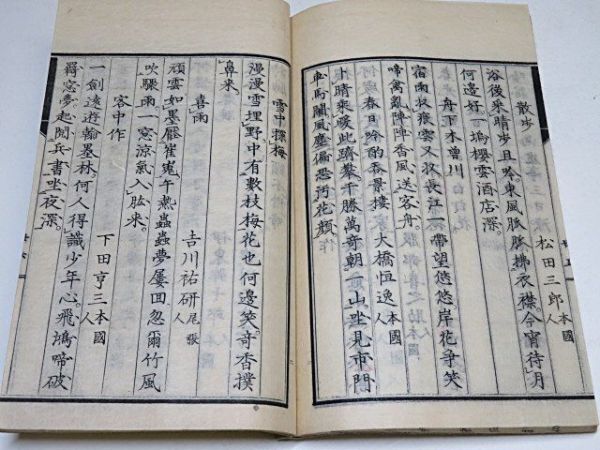 散步　松田三郎本國人
浴後乘晴步且吟東風脈脈拂衣襟今宵待月
何邊好一塢櫻雲酒店深。
舟下木曾川
宿雨收痕雲又收長江一帶望悠悠岸花爭笑
啼禽亂陣陣香風送客舟。
春日吟酌香景樓　大橋恒逸本國人
卜晴乘暖此躋攀千勝萬奇朝一山坐見市門
車馬鬧風塵偏恐污花顏
雪中探梅
漫漫雪埋野中有數枝梅花也何邊笑奇香撲
鼻来。
喜雨　吉川祐研尾張人
頑雲如墨壓崔嵬午熱蟲蟲夢屢回忽爾竹風
吹驟雨一窓涼氣入肱来。
客中作　下田亨三本國人
一劍遠遊翰墨林何人得識少年心。飛鴻啼破
羇窓夢起閲兵書坐夜深。